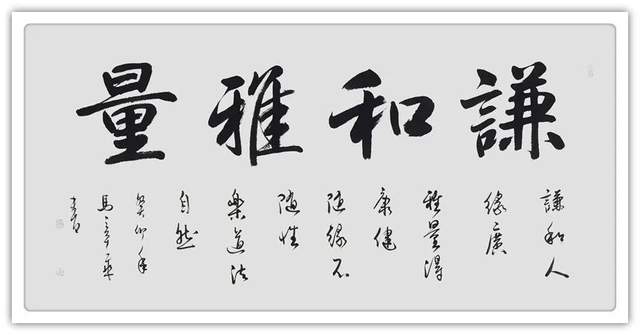 謙和雅量
謙和人
緣廣
雅量得
康健
随緣不
随性
樂道法
自然
癸卯年
馬
書